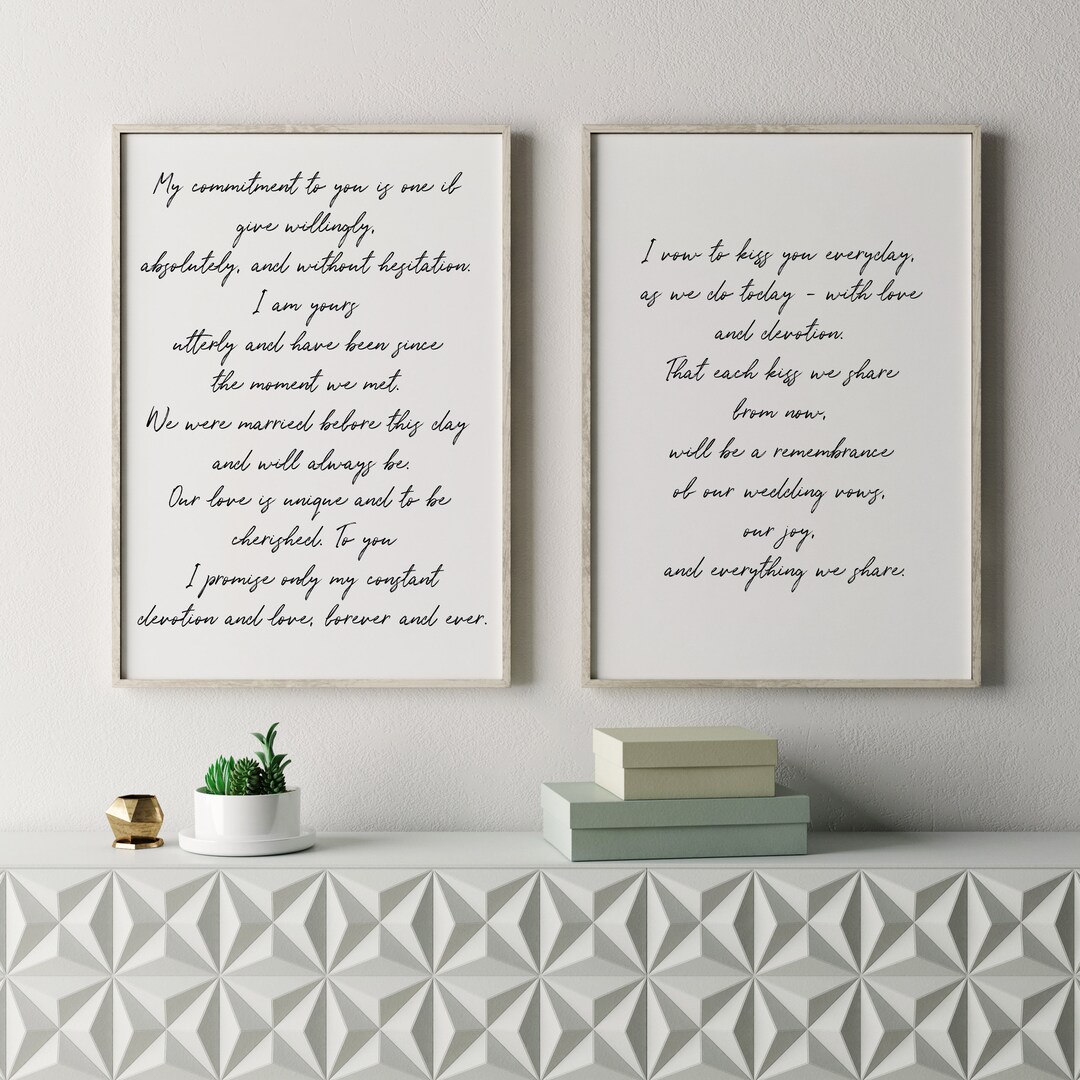 My commitment to you is one if
give willingly,
absolutely, and without hesitation.
I am yours
utterly and have been since
the moment we met.
We were married before this day
and will always be.
Our love is unique and to be
cherished. To you
I promise only my constant
devotion and love, forever and ever.
I vow to kiss you everyday,
as we do today - with love
and devotion.
That each kiss we share
from now,
will be a remembrance
of our wedding vows,
our joy,
and everything we share.